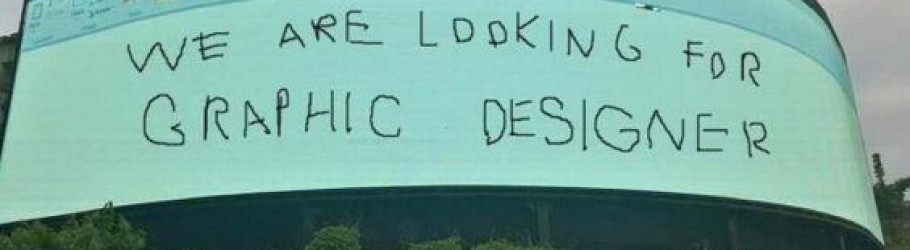 WE ARE LOOKING FOR
GRAPHIC DESIGNER